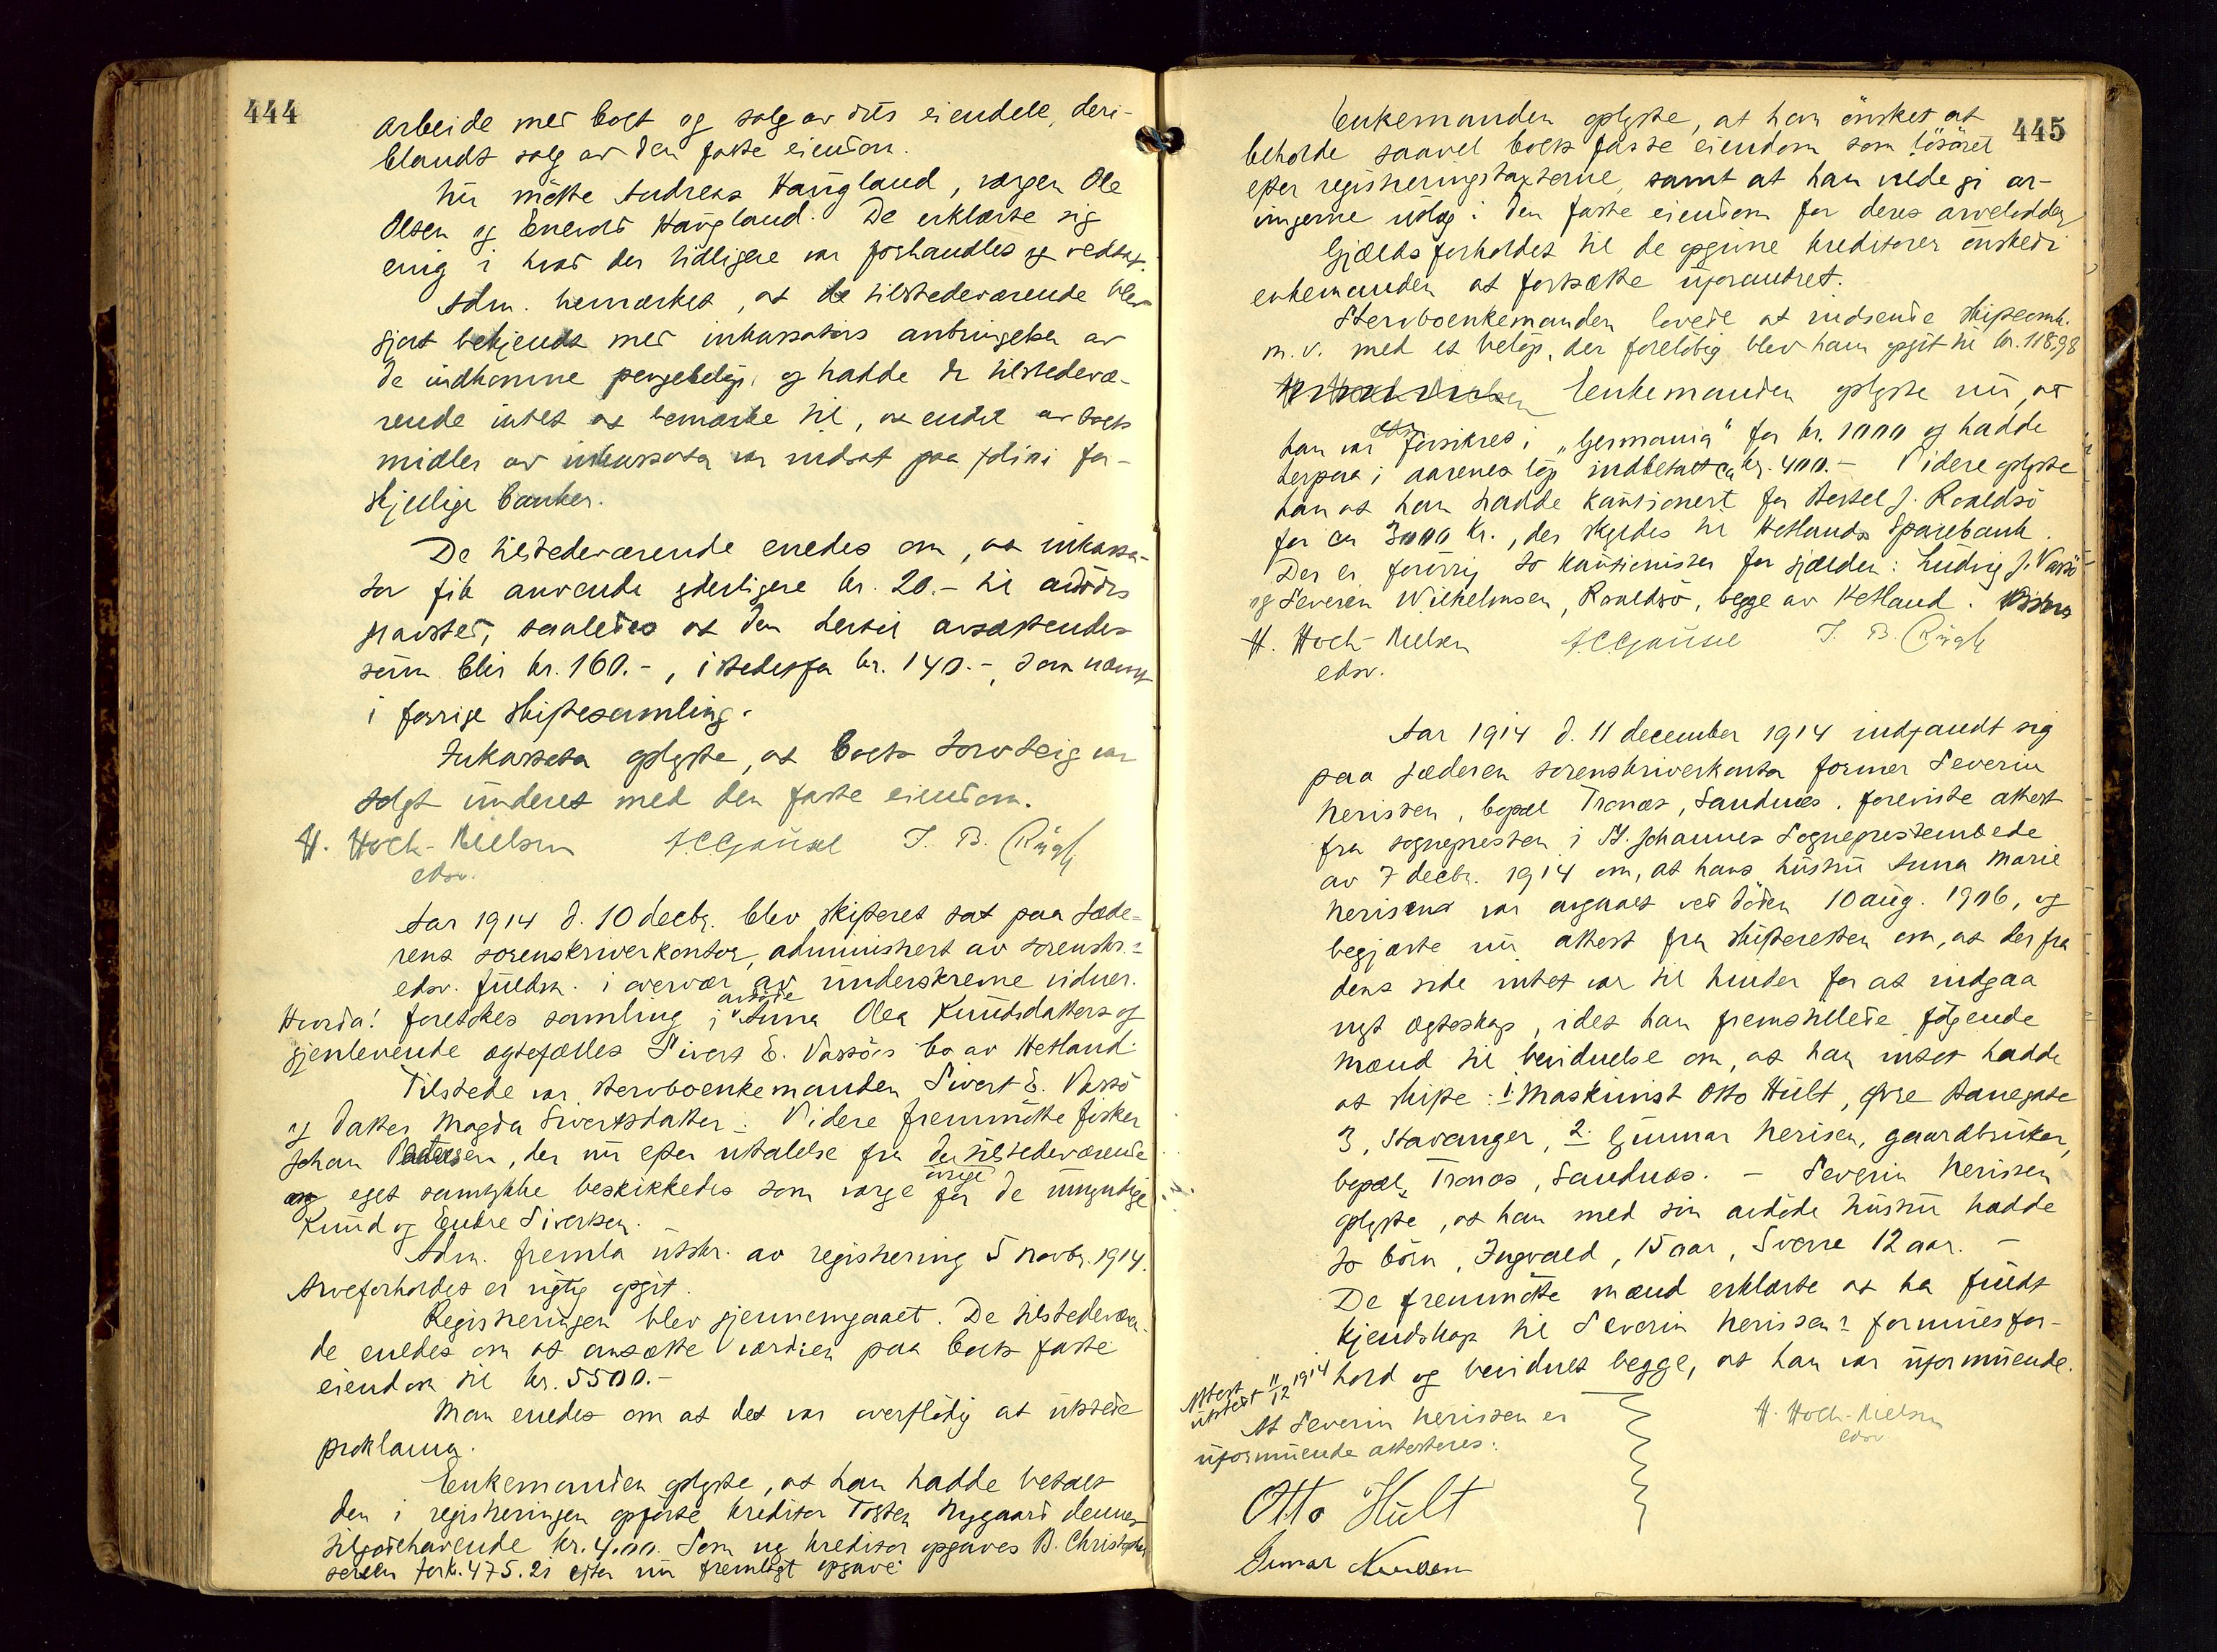 444
arbeide med boet og salg av dets eiendele, deri-
blandt salg av den faste eiendom.
Nu møtte Andreas Haugland, vergen Ole
Olsen og Enevold Haugland. De erklærte sig
enig i hvad der tidligere var forhandlet og vedtat.
Adm. bemærket, at de tilstedeværende blev
gjort bekjendt med inkassators anbringelse av
de indkomne pengebeløp, og hadde de tilstedevæ-
rende intet at bemærke til, at endel av boets
midler av inkassator var indsat paa folio i for-
skjellige banker.
De tilstedeværende enedes om, at inkassa-
tor fik anvende yderligere kr. 20.- til avdødes
gravsted, saaledes at den hertil avsættendes
sum blir kr. 160.-, istedetfor kr. 140.-, som nævnt
i forrige skiftesamling.
Inkassator oplyste, at boets torvteig var
solgt underet med den faste eiendom.
H. Hoch-Nielsen A.C. Gausel T. B. Rugh
edsv.
Aar 1914 d. 10 decbr. blev skifteret sat paa Jæde-
rens sorenskriverkontor, administrert av sorenskr.s
edsv. fuldm. i overvær av underskrevne vidner.
Hvorda! foretokes samling i avdøde Anna Olea Knudsdatters og
gjenlevende ægtefælles Sivert E. Vassøs bo av Hetland.
Tilstede var stervboenkemanden Sivert E. Vassø
og datter Magda Sivertsdatter. Videre fremmøtte fisker
Johan Pedersen, der nu efter uttalelse fra de tilstedeværende
og eget samtykke beskikkedes som verge for de øvrige umyndige
Knud og Endre Siversen.
Adm. fremla utskr. av registrering 5 novbr. 1914.
Arveforholdet er rigtig opgit.
Registreringen blev gjennemgaaet. De tilstedeværen-
de enedes om at ansætte værdien paa boets faste
eiendom til kr. 5500.-
Man enedes om at det var overflødig at utstede
proklama.
Enkemanden oplyste, at han hadde betalt
den i registreringen opførte kreditor Tosten Nygaard dennes
tilgodehavende kr. 4.00. Som ny kreditor opgaves B. Christopher
sersen for kr. 475.21 efter nu fremlagt opgave
445
Enkemanden oplyste, at han ønsket at
beholde saavel boets faste eiendom som løsøret
efter registreringstaxterne, samt at han vilde gi ar-
vingerne utlæg i den faste eiendom for deres arvelodder
Gjældsforholdet til de opgivne kreditorer ønskedi
enkemanden at fortsætte uforandret.
Stervboenkemanden lovede at indsende skifteomk.
m. v. med et beløp, der foreløbig blev ham opgit til kr. 118,98
Enkemanden oplyste nu, at
han var forsikret i "Germania" for kr. 1000 og hadde
herpaa i aarenes løp indbetalt ca kr. 400.- Videre oplyste
han at han hadde kautionert for Bertel J. Roaldsø
for ca 3000 kr., der skyldes til Hetlands Sparebank.
Der er forøvrig to kautionister for gjælden: Ludvig J. Vassø
og Severen Wilhelmsen, Roaldsø, begge av Hetland.
H. Hoch-Nielsen A.C. Gausel T. B. Rugh
edsv.
Aar 1914 d. 11 december 1914 indfandt sig
paa Jæderen sorenskriverkontor former Severin
Nerisen, bopæl Tronæs, Sandnes. foreviste attest
fra sognepresten i St. Johannes Sogneprestembede
av 7 decbr. 1914 om, at hans hustru Anna Marie
Nerisens var avgaaet ved døden 10 aug. 1906, og
begjærte nu attest fra skifteretten om, at der fra
dens side intet var til hinder for at indgaa
nyt ægteskap, idet han fremstillede følgende
mænd til bevidnelse om, at han intet hadde
at skifte: 1. Maskinist Otto Hult, Øvre Banegate
3, Stavanger, 2. Gunnar Nerisen, gaardbruker,
bopæl, Tronæs, Sandnæs. - Severin Nerissen
oplyste, at han med sin avdøde hustru hadde
to børn, Ingvald, 15 aar, Sverre 12 aar. -
De fremmøtte mænd erklærte at ha fuldt
kjendskap til Severin Nerissens formuesfor-
hold og bevidnet begge, at han var uformuende.
Attest
utstedt 11/12 1914
At Severin Nerissen er
uformuende attesteres:
H. Hoch-Nielsen
edsv
Otto Hult
Gunnar Nerisen